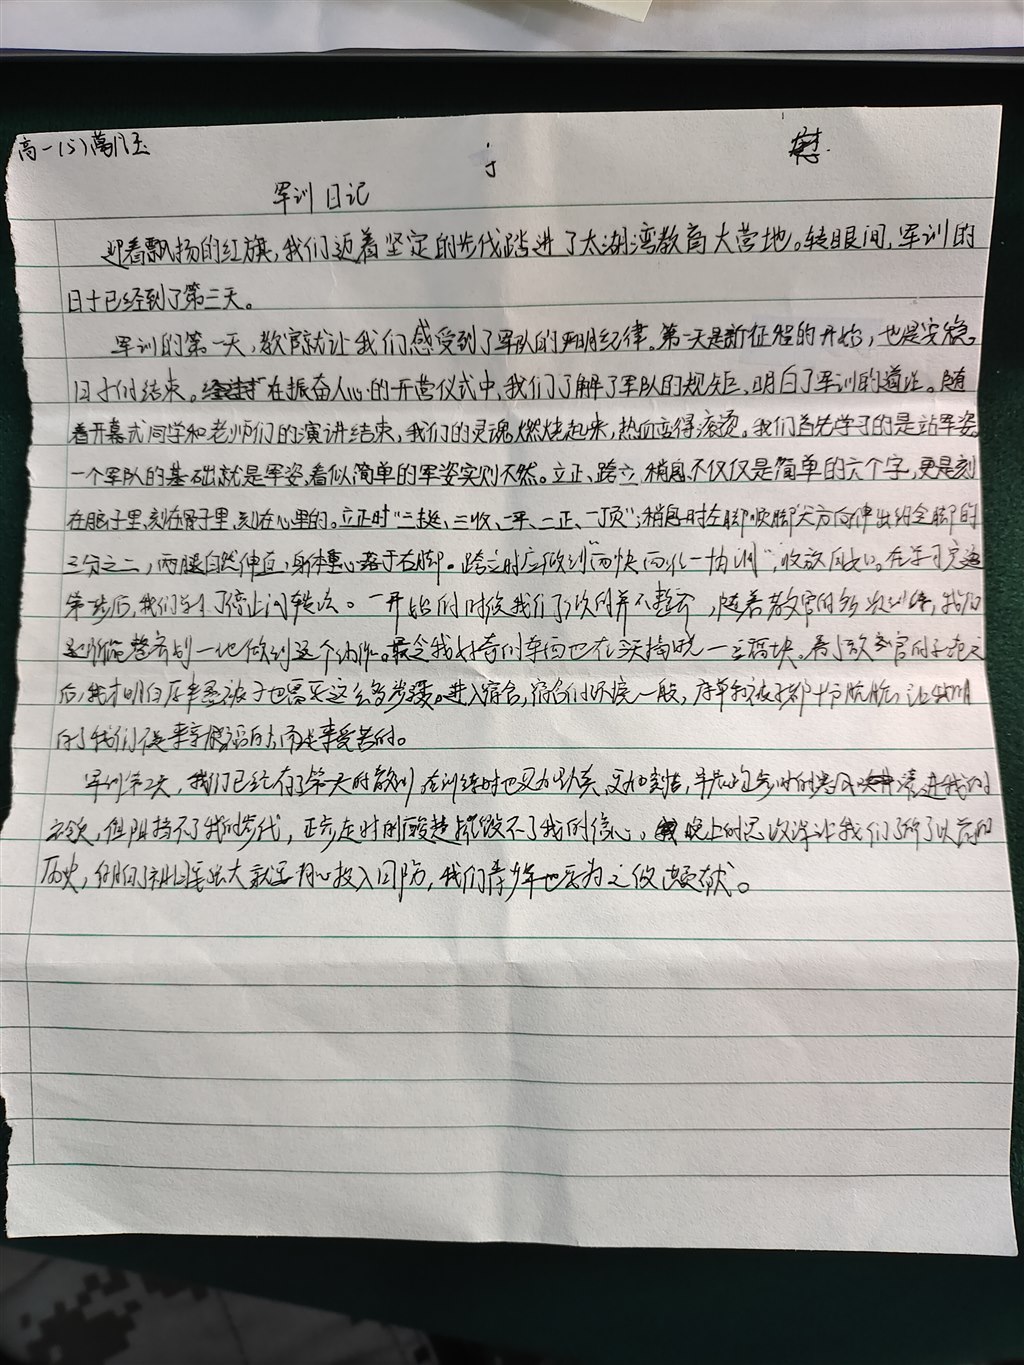 高一(5)
军训日记
迎着飘扬的红旗,我们迈着坚定的步伐踏进了太湖湾教育大营地。转眼间,军训的
日子已经到了第三天。
军训的第一天,教官就让我们感受到了军队的严明纪律。第一天是新征程的开始,也是安稳
日子的结束。在振奋人心的开营仪式中,我们了解了军队的规矩,明白了军训的道理。随
着开幕式同学和老师们的演讲结束,我们的灵魂燃烧起来,热血变得滚烫。我们首先学习的是站军姿
一个军队的基础就是军姿,看似简单的军姿实则不然。立正、跨立、稍息不仅仅是简单的六个字,更是刻
在脑子里,刻在骨子里,刻在心里的。立正时"三挺、三收、一平、一正、一顶";稍息时左脚顺脚尖方向伸出约全脚的
三分之二,两腿自然伸直,身体重心落于右脚。跨立时应做到"两快两准一协调",收放自如。在学习完
军姿后,我们学习了停止间转法。一开始的时候我们每次的并不整齐,随着教官的多次训练,我们
整齐划一地做到这个动作。最令我好奇的东西也在今天揭晓——豆腐块。看了教官的
后,我才明白原来叠被子也需要这么多步骤。进入宿舍,宿舍的环境一般,床单和被子都十分肮脏,让我明
白了我们不是来享福的,而是来受苦的。
军训第2天,我们已经有了第一天的教训,在训练时也更加认真,更加刻苦,
衣领,但阻挡不了我的步伐,正步走时的酸楚摧毁不了我的信心。晚上的思政课让我们了解了以前的
历史,祖国要强大就要用心投入国防,我们青少年也要为之做出贡献。